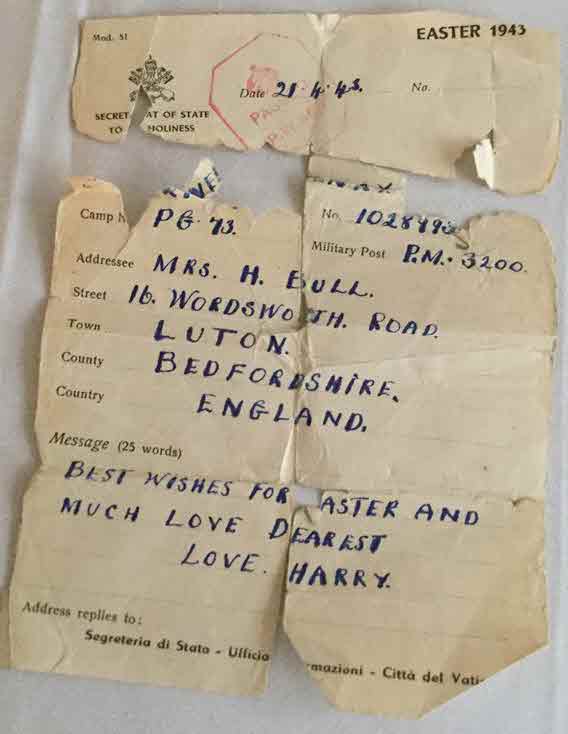 EASTER 1943
Mod. SI
Date 21·4·43. No.
PAS
SECRET AT OF STATE
TO HOLINESS
Camp N PG 73. No. 1028993
Military Post P.M. 3200.
Addressee MRS. H. BULL.
Street 16. WORDSWO TH. ROAD.
Town LUTON.
County BEDFORDSHIRE.
Country ENGLAND.
Message (25 words)
BEST WISHES FOR ASTER AND
MUCH LOVE DEAREST
LOVE. HARRY.
Address replies to:
Segreteria di Stato - Ufficio mazioni - Città del Vati